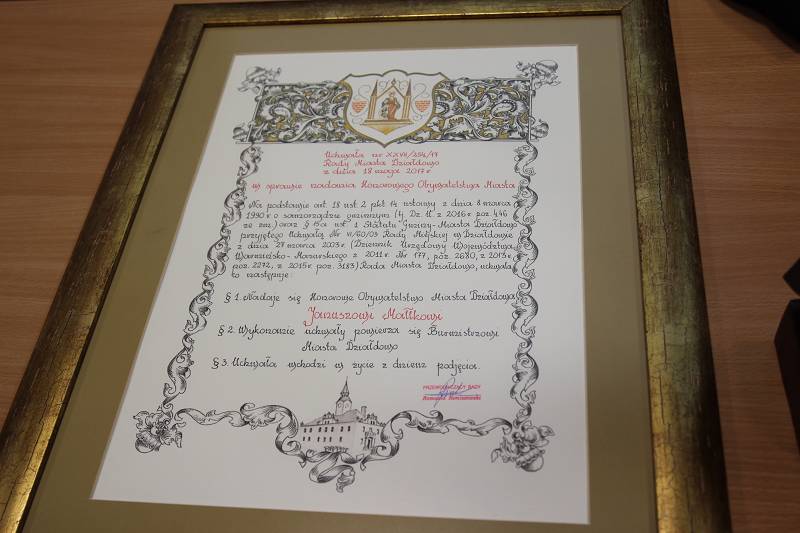 Uchwała nr XXVII/254/17
Rady Miasta Działdowo
z dnia 18 maja 2017 r.
w sprawie nadania Honorowego Obywatelstwa Miasta
Na podstawie art. 18 ust. 2 pkt 14 ustawy z dnia 8 marca
1990 r. o samorządzie gminnym (tj. Dz. U. z 2016 r. poz. 446
ze zm.) oraz § 15a ust. 1 Statutu Gminy-Miasta Działdowo
przyjętego Uchwałą Nr VI/60/03 Rady Miejskiej w Działdowie
z dnia 27 marca 2003 r. (Dziennik Urzędowy Województwa
Warmińsko-Mazurskiego z 2011 r. Nr 177, poz. 2680, z 2013 r.
poz. 2272, z 2015 r. poz. 3183) Rada Miasta Działdowo, uchwala
co następuje:
§ 1. Nadaje się Honorowe Obywatelstwo Miasta Działdowa
Januszowi Małłkowi
§ 2. Wykonanie uchwały powierza się Burmistrzowi
Miasta Działdowo
§ 3. Uchwała wchodzi w życie z dniem podjęcia.
PRZEWODNICZĄCY RADY